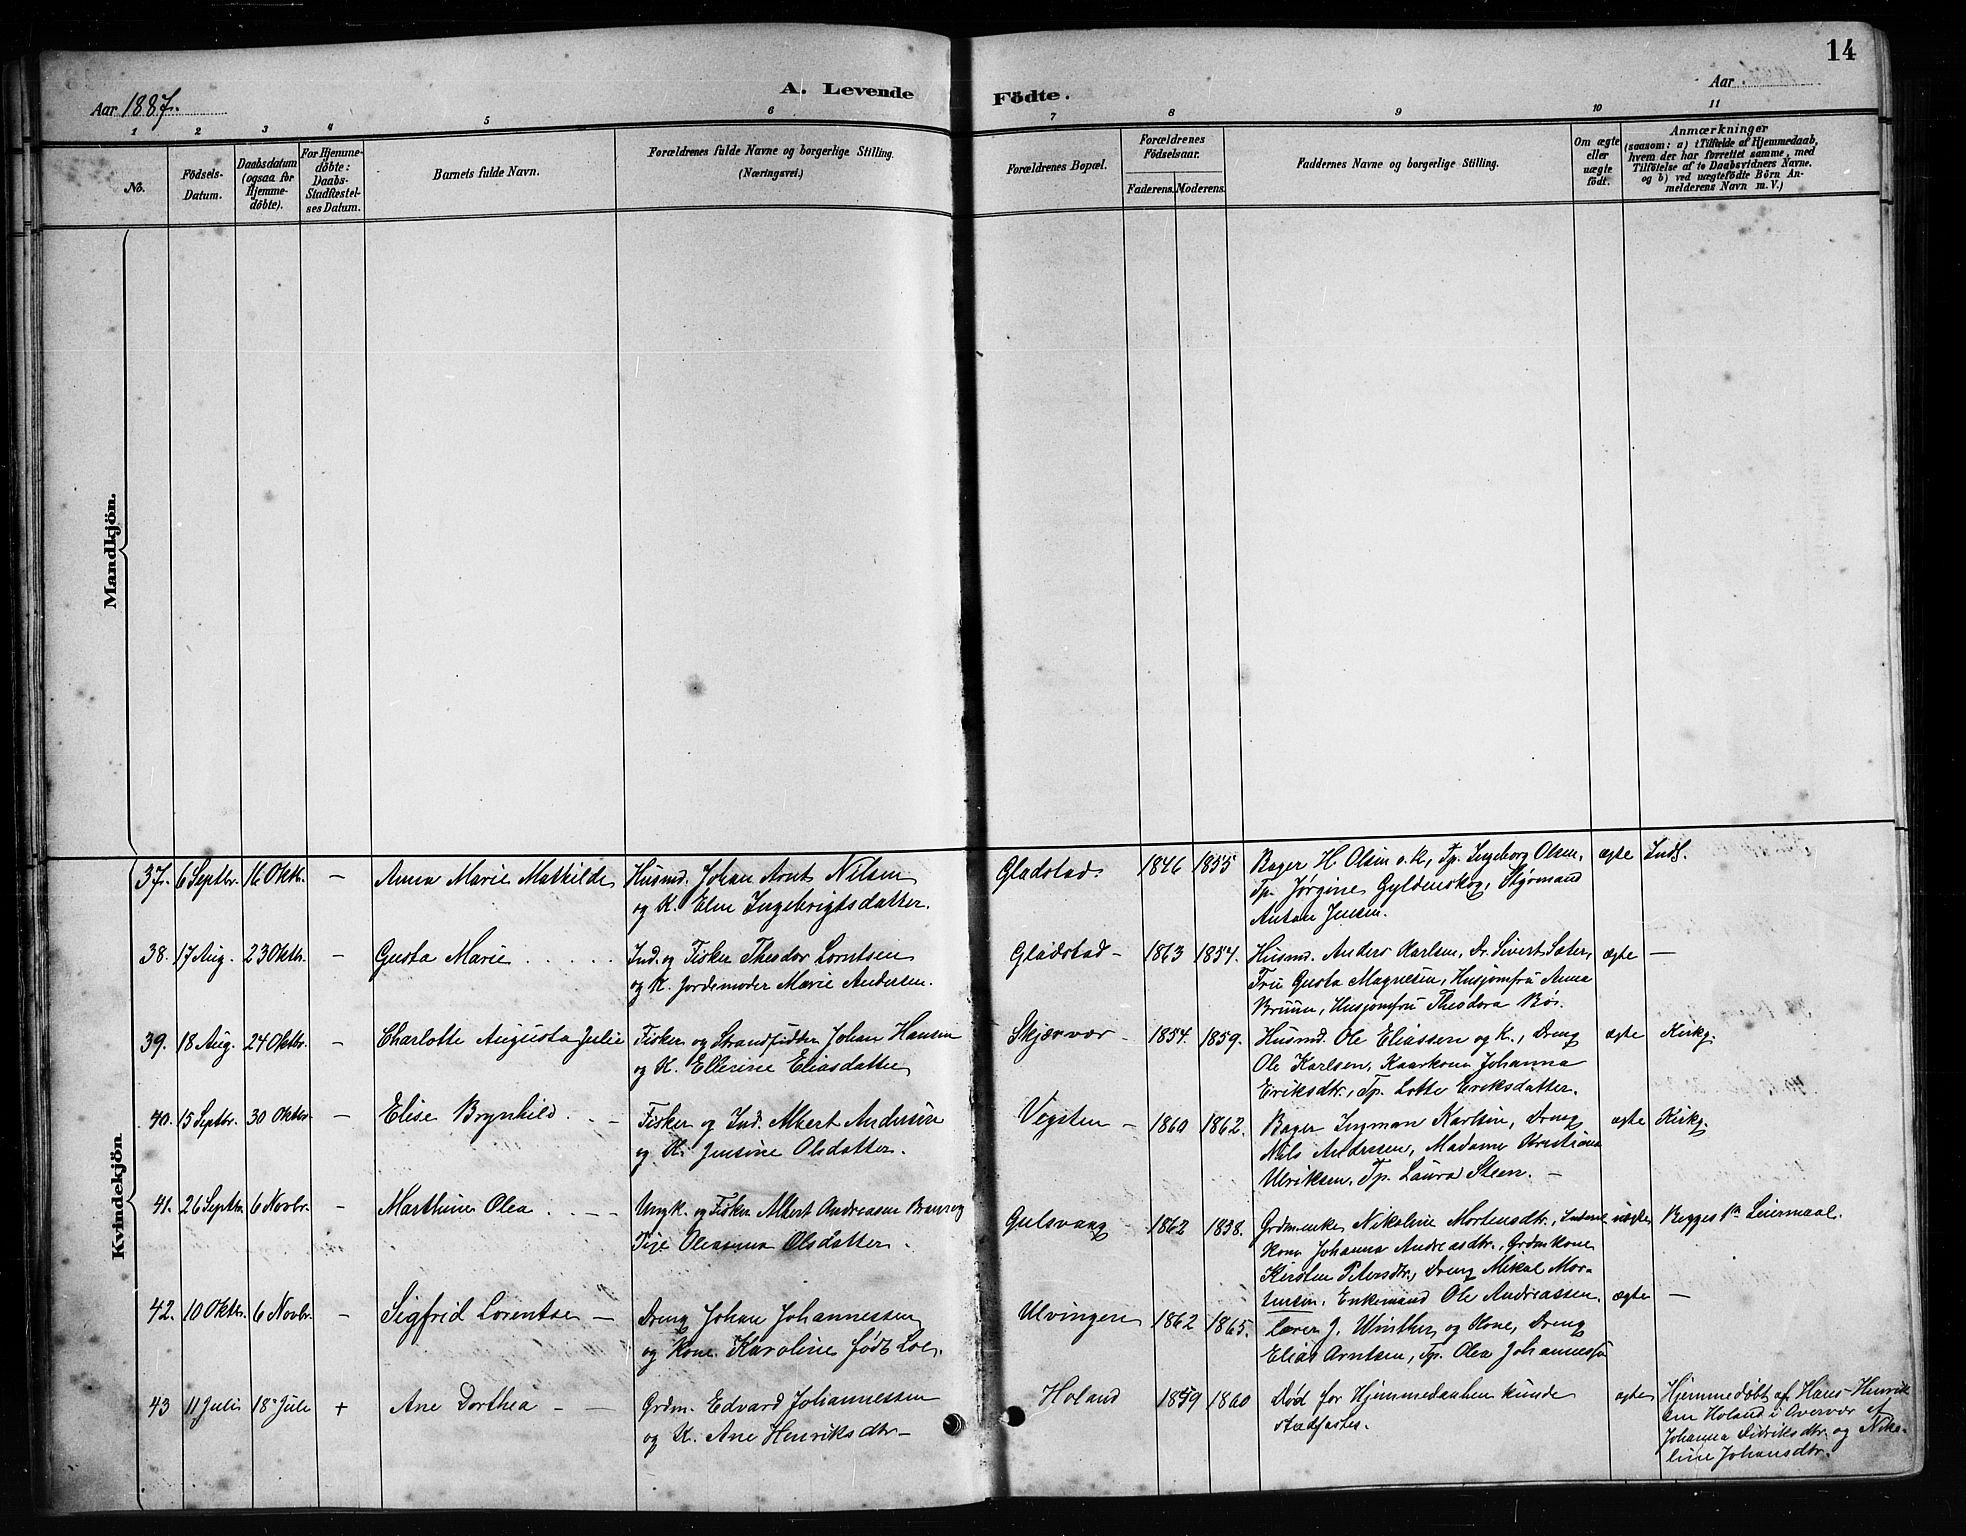 14
Aar 1887.
A. Levende Födte.
Aar
1 2 3 4 5 6 7 8 9 10 11
No.
Födsels-Datum.
Daabsdatum (ogsaa for Hjemme-döbte).
For Hjemme-döbte: Daabs-Stadfæstel-ses Datum.
Barnets fulde Navn.
Forældrenes fulde Navne og borgerlige Stilling.
(Næringsvei.)
Forældrenes Bopæl.
Forældrenes Födselsaar.
Faderens. Moderens.
Faddernes Navne og borgerlige Stilling.
Om ægte eller uægte födt.
Anmærkninger
(saasom: a) i Tilfælde af Hjemmedaab,
hvem der har forrettet samme, med
Tilföielse af to Daabsvidners Navne.
og b) ved uægtefödte Börn An-
melderens Navn m. V.)
Mandkjön.
Kvindekjön.
37. 6 Septbr. 16 Oktbr. — Anna Marie Mathilde Husmd. Johan Arnt Nilsen Gladstad. 1846 1855 Bager H. Olsen o. k., Tp. Ingeborg Olsen, ægte Inds.
og K. Elen Ingebrigtsdatter. Tp. Jørgine Gyldenskog, Styrmand
Anton Jensen.
38. 17 Aug. 23 Oktbr. — Gusta Marie Ind. og Fisker Theodor Lorntsen Gladstad — 1863 1854. Husmd. Anders Karlsen, Dr. Sivert Sater, ægte —
og K. Jordemoder Marie Andersen. Fru Gusta Magnesen, Husjomfru Anna
Bruun, Husjomfru Theodora Bös.
39. 18 Aug. 24 Oktbr. — Charlotte Augusta Julie Fisker og Strandsidder Johan Hansen Skjærvær — 1854. 1859. Husmd. Ole Eliassen og K., Dreng ægte Kirkg.
og K. Ellerine Eliasdatter Ole Karlsen, Kaarkone Johanna
Eriksdtr., Tp. Lotte Eriksdatter.
40. 15 Septbr. 30 Oktbr. — Elise Brynhild. Fisker og Ind. Albert Andersen Vegsten — 1860 1862. Bager Ingman Karlsen, Dreng ægte Kirkg.
og K. Jensine Olsdatter. Nils Andersen, Madame Kristiane
Ulriksen, Tp. Laura Steen. —
41. 26 Septbr. 6 Novbr. — Marthine Olea Ungk. og Fisker Albert Andreasen og Gulsvaag 1862 1838. Grdmenke Nikoline Mortensdtr., uægte Begges 1ste Leiermaal.
Pige Oleanna Olsdatter. kone Johanna Andreasdtr., Grdmskone
Kirsten Petersdtr., Dreng Mekal Mor-
tensen, Enkemand Ole Andreassen.
42. 10 Oktbr. 6 Novbr. — Sigfrid Lorentse — Dreng Johan Johannessen Ulvingen 1862 1865. Lærer J. Winther og Kone, Dreng ægte —
og Kone Karoline født Loe. Elias Arntsen, Tp. Olea Johannessen
43 11 Juli 18 Juli + Ane Dorthea — Grdm. Edvard Johannessen Holand 1859 1860 Død før Hjemmedaaben kunde ægte Hjemmedøbt af Hans Henrik
og K. Ane Henriksdtr — stadfæstes. sen Holand i Overvær af
Johanna Didriksdtr. og Niko-
line Johansdtr.